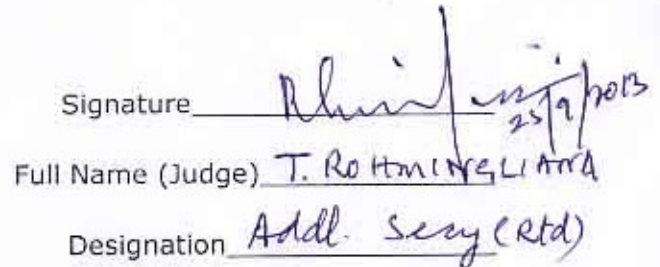 Signature 25/9/2013
Full Name (Judge) T. ROHMINGLIANA
Designation Addl. Secy (Rtd)